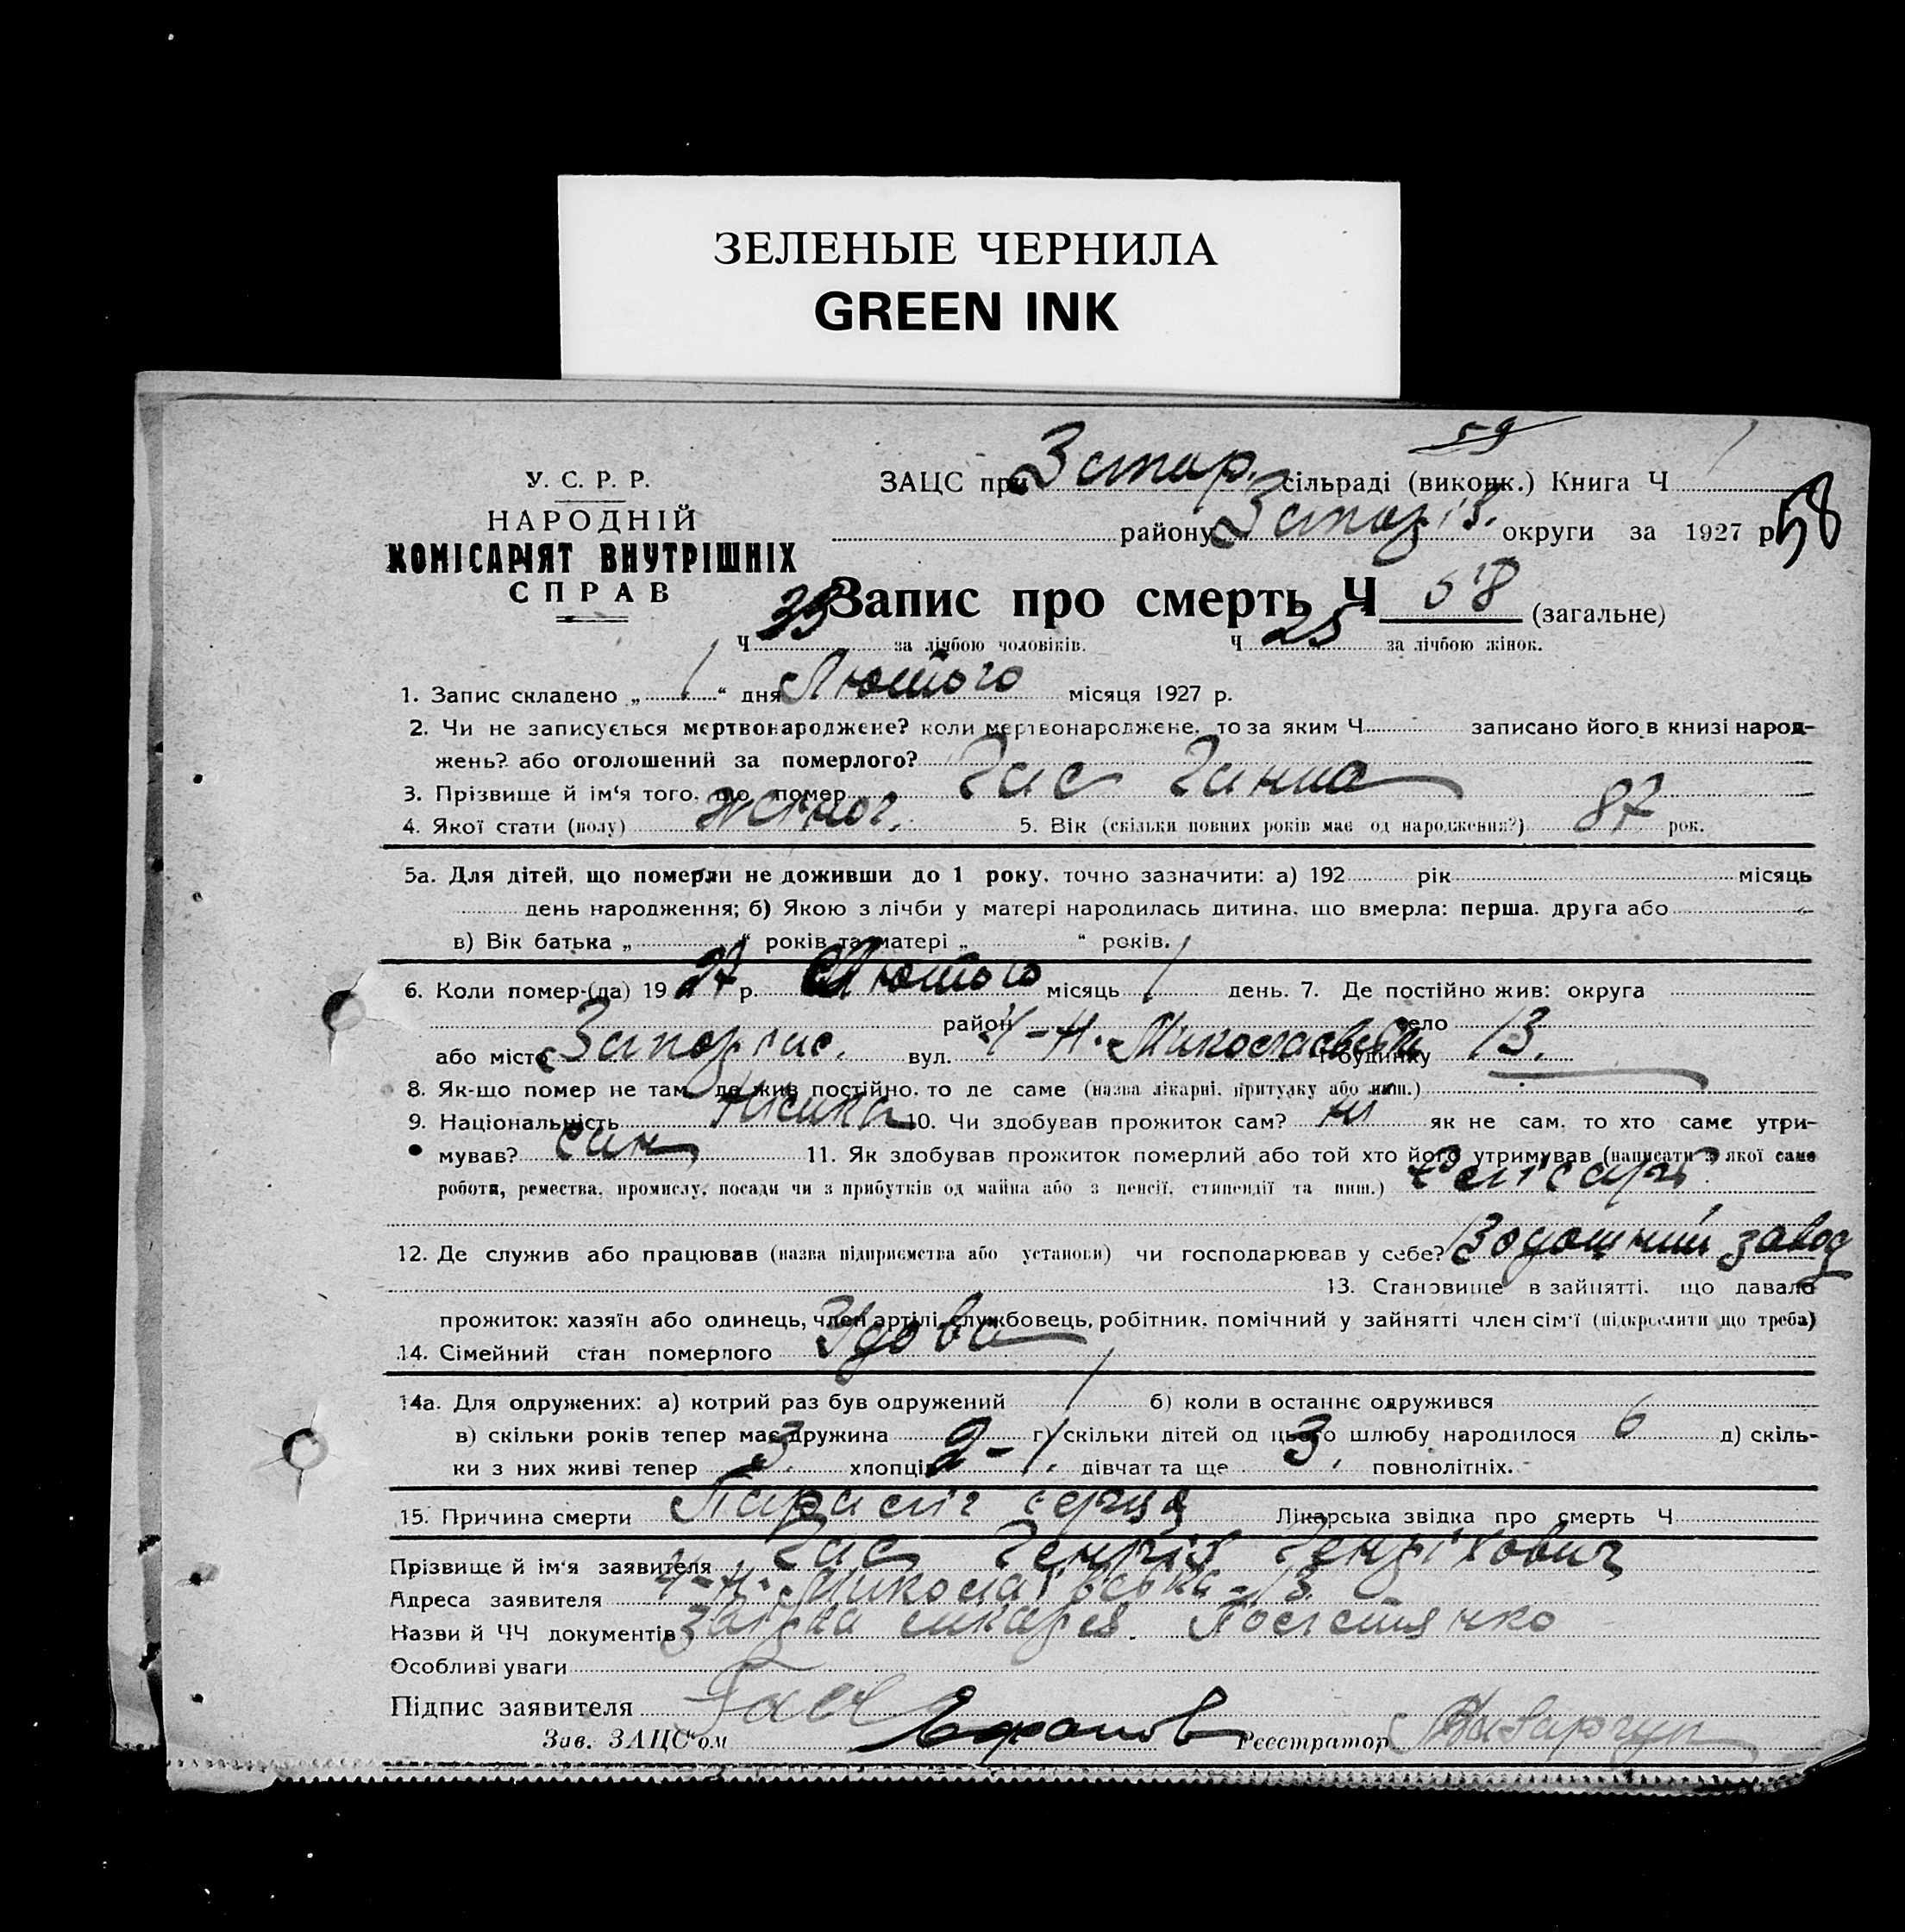 ЗЕЛЕНЫЕ ЧЕРНИЛА
GREEN INK
59
У. С. Р. Р.
НАРОДНІЙ
КОМІСАРІЯТ ВНУТРІШНІХ
СПРАВ
ЗАЦС при Запор. сільраді (виконк.) Книга Ч 1
району Запоріз. округи за 1927 р. 58
Запис про смерть Ч 58 (загальне)
Ч 33 за лічбою чоловіків. Ч 25 за лічбою жінок.
1. Запис складено „ 1 “ дня Лютого місяця 1927 р.
2. Чи не записується мертвонароджене? коли мертвонароджене, то за яким Ч записано його в книзі народ-
жень? або оголошений за померлого?
3. Прізвище й ім'я того, що помер Гас Ганна
4. Якої статі (полу) жіноч. 5. Вік (скільки повних років має од народження?) 87 рок.
5а. Для дітей, що померли не доживши до 1 року, точно зазначити: а) 192 рік місяць
день народження; б) Якою з лічби у матері народилась дитина, що вмерла: перша, друга або
в) Вік батька „ “ років та матері „ “ років.
6. Коли помер-(ла) 19 27 р. Лютого місяць 1 день. 7. Де постійно жив: округа
район село
або місто вул. Миколаевська Ч будинку 13.
8. Як-що помер не там, де жив постійно, то де саме (назва лікарні, притулку або инш.)
9. Національність Німка 10. Чи здобував прожиток сам? ні як не сам, то хто саме утри-
мував? син 11. Як здобував прожиток померлий або той хто його утримував (написати з якої саме
роботи, ремества, промислу, посади чи з прибутків од майна або з пенсії, стипендії та инш.) слісарь
12. Де служив або працював (назва підприємства або установи) чи господарював у себе? завод
13. Становище в зайнятті, що давало
прожиток: хазяїн або одинець, член артілі, службовець, робітник, помічний у зайнятті член сім'ї (підкреслити що треба)
14. Сімейний стан померлого Удова
14а. Для одружених: а) котрий раз був одружений 1 б) коли в останнє одружився
в) скільки років тепер має дружина г) скільки дітей од цього шлюбу народилося 6 д) скіль-
ки з них живі тепер 3. хлопців 2 - 1. дівчат та ще 3, повнолітніх.
15. Причина смерти Параліч серця Лікарська звідка про смерть Ч
Прізвище й ім'я заявителя Гас Генріх Генріхович
Адреса заявителя Миколаівська - 13
Назви й ЧЧ документів лікаря
Особливі уваги
Підпис заявителя
Зав. ЗАЦС'ом Реєстратор